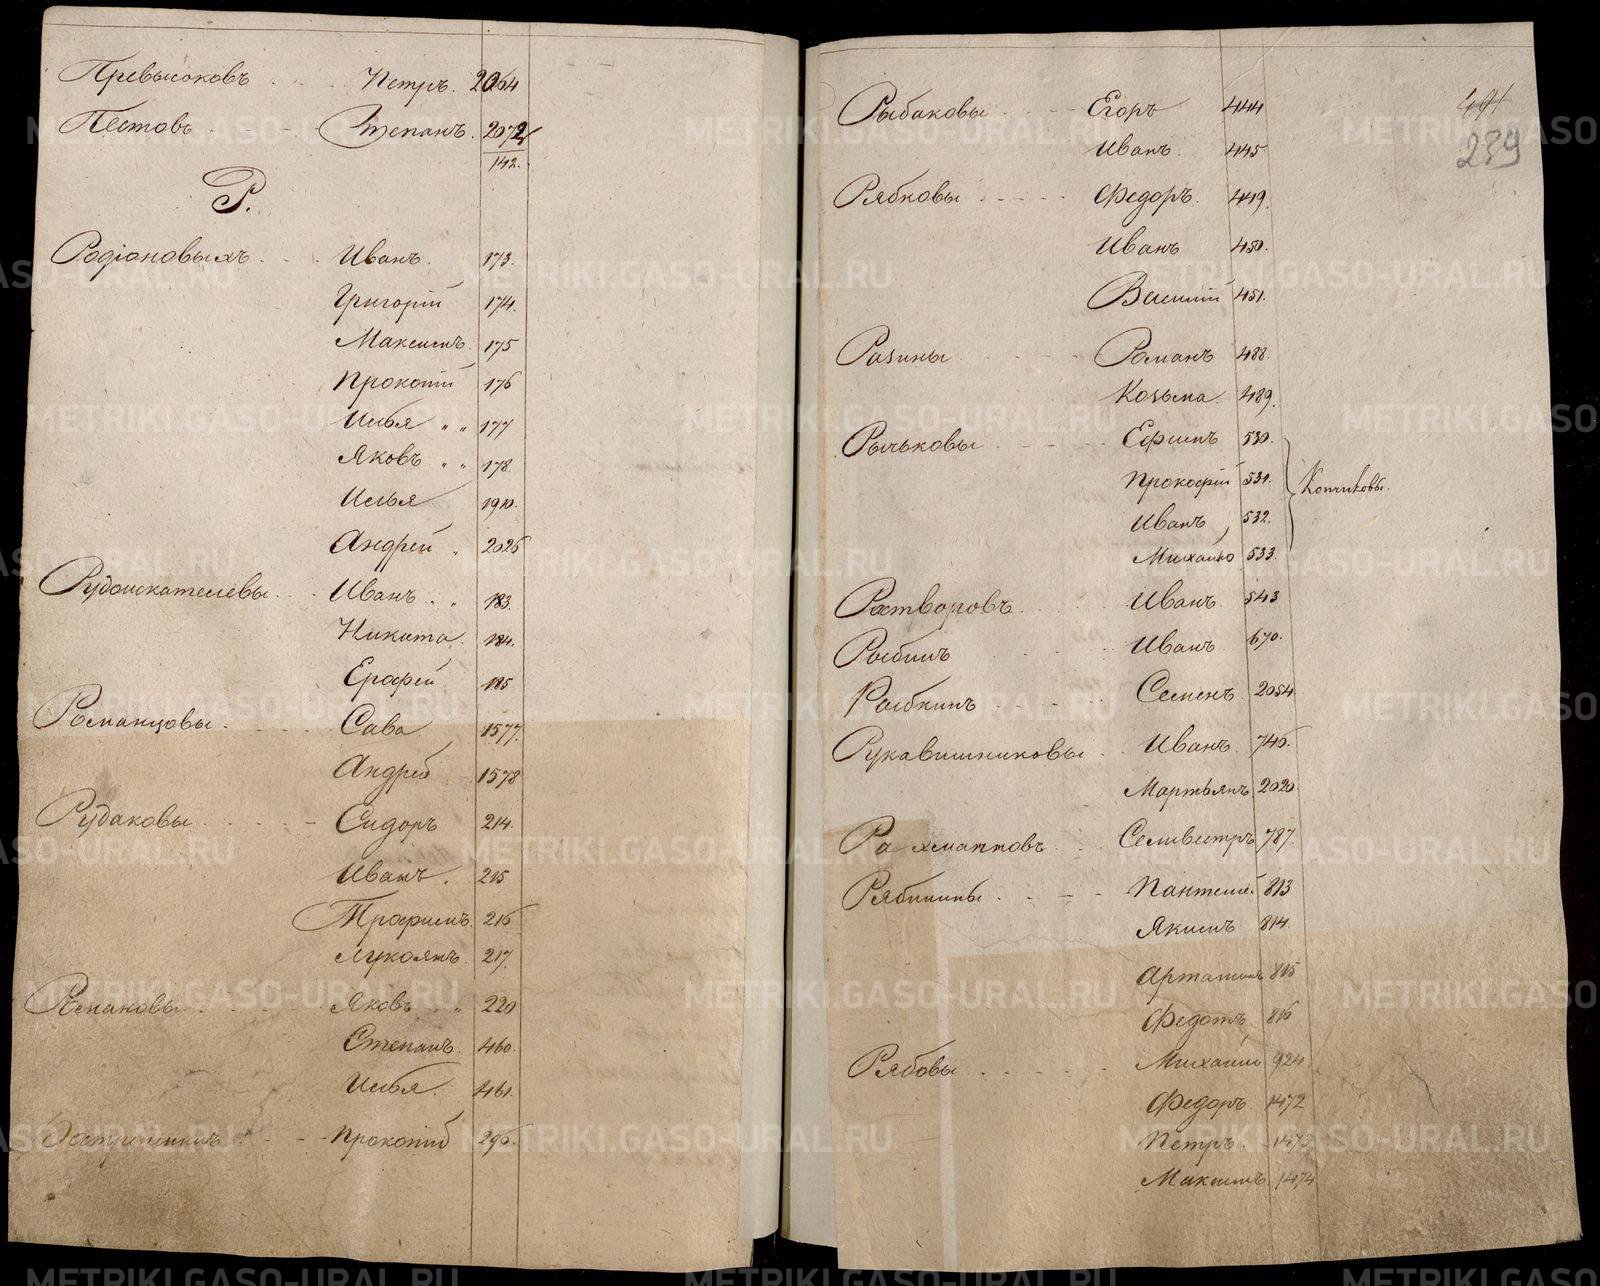 Превысоковъ Петръ. 2064
Пестовъ Степанъ. 2072
142.
Р.
Родіоновыхъ Иванъ. 173.
Григорій 174.
Максимъ 175
Прокопій 176
Илья " " 177
Яковъ " " 178
Илья 1910.
Андрей " 2026
Рудоискателевы Иванъ " " 183.
Никита 184.
Ерофей 185
Романцовы Сава 1577.
Андрей 1578
Рудаковы Сидоръ 214.
Иванъ. 215
Трофимъ 216
Лукоянъ. 217.
Романовы Яковъ " 220
Степанъ. 460.
Илья. 461.
Прокопій 296.
491
239
Рыбаковы Егоръ 444
Иванъ. 445.
Рябковы Федоръ. 449.
Иванъ 450.
Василій 451.
Разины Романъ 488.
Козьма. 489.
Рычьковы Ефимъ 530.
Прокофій 531.
Иванъ, 532.
Михайло 533.
Копчиковы.
Растворовъ Иванъ. 543
Рыбинъ Иванъ. 670.
Рыбкинъ Семенъ 2054.
Рукавишниковы Иванъ. 746.
Мартьянъ 2020
Рахманновъ Селивестръ 787.
Рябинины Пантелей 813
Якимъ 814.
Артамонъ 815
Федотъ. 816
Рябовы Михайло 924
Федоръ 1472
Петръ. 1473
Максимъ. 1474
METRIKI.GASO-URAL.RU